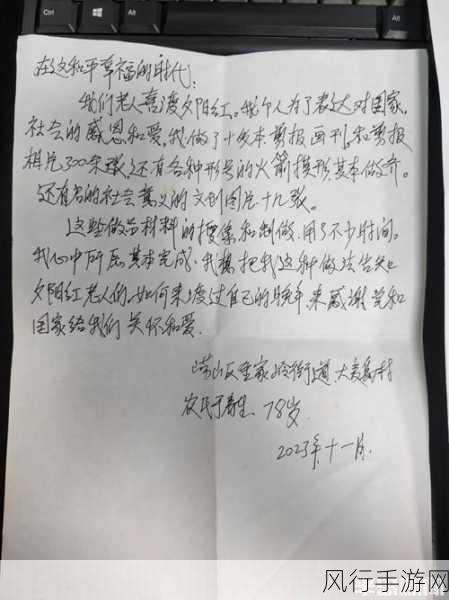 在这和平幸福的时代:
我们老人喜渡夕阳红。我个人为了表达对国家.
社会的感恩和爱,我做了十几本剪报画刊,和剪报
相片300余张,还有各种形号的火箭模形,基本做齐。
还有名的社会意义的文创图片十几张。
这些做品材料的搜集和制做,用了不少时间。
我心中所愿基本完成,我想把我这种做法告知
夕阳红老人们,如何来渡过自己的晚年,来感谢党和
国家给我们关怀和爱.
崂山区王家岭街道大麦岛村
农民于春生 78岁.
2023年十一月.
Win
Alt
Ctrl
风行手游网